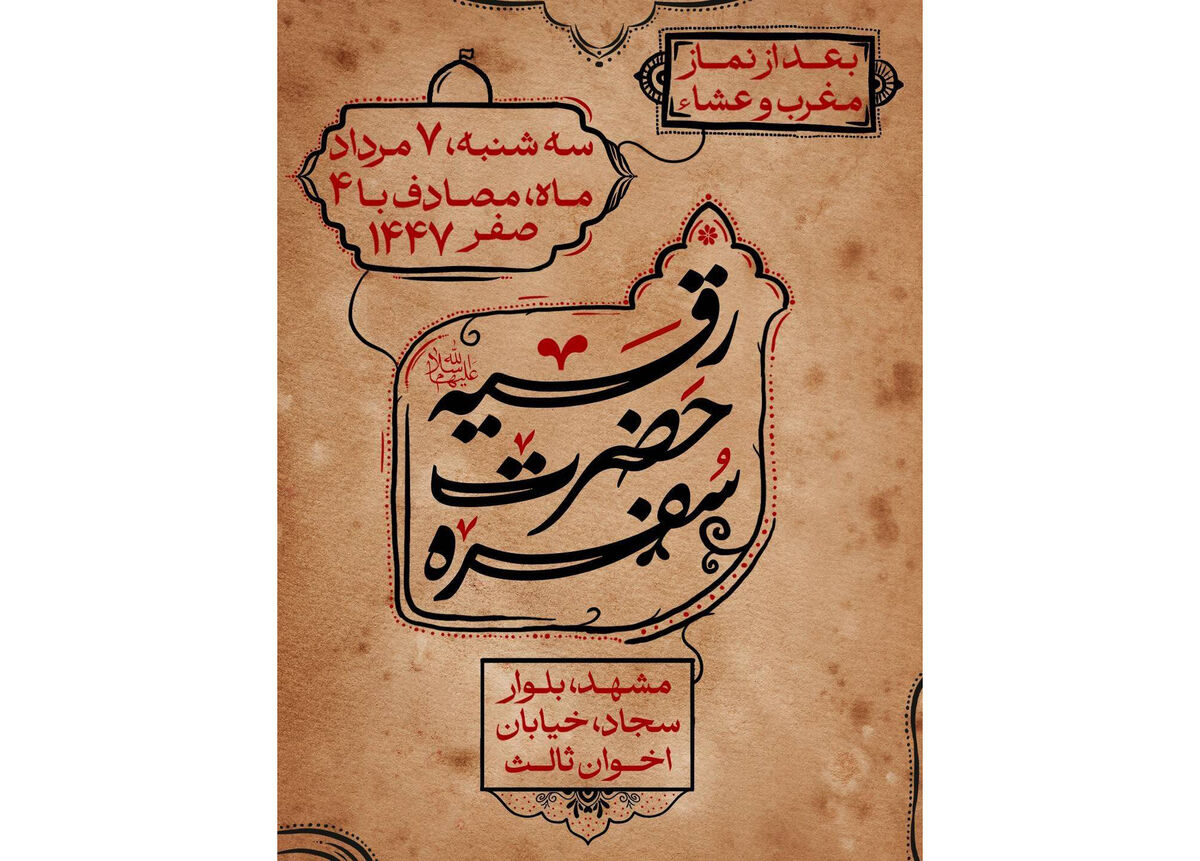 بعد از نماز
مغرب و عشاء
سه شنبه، ۷ مرداد
ماه، مصادف با ۴
صفر ۱۴۴۷
سُفره
حضرت
رقیه
سلام الله علیها
مشهد، بلوار
سجاد، خیابان
اخوان ثالث